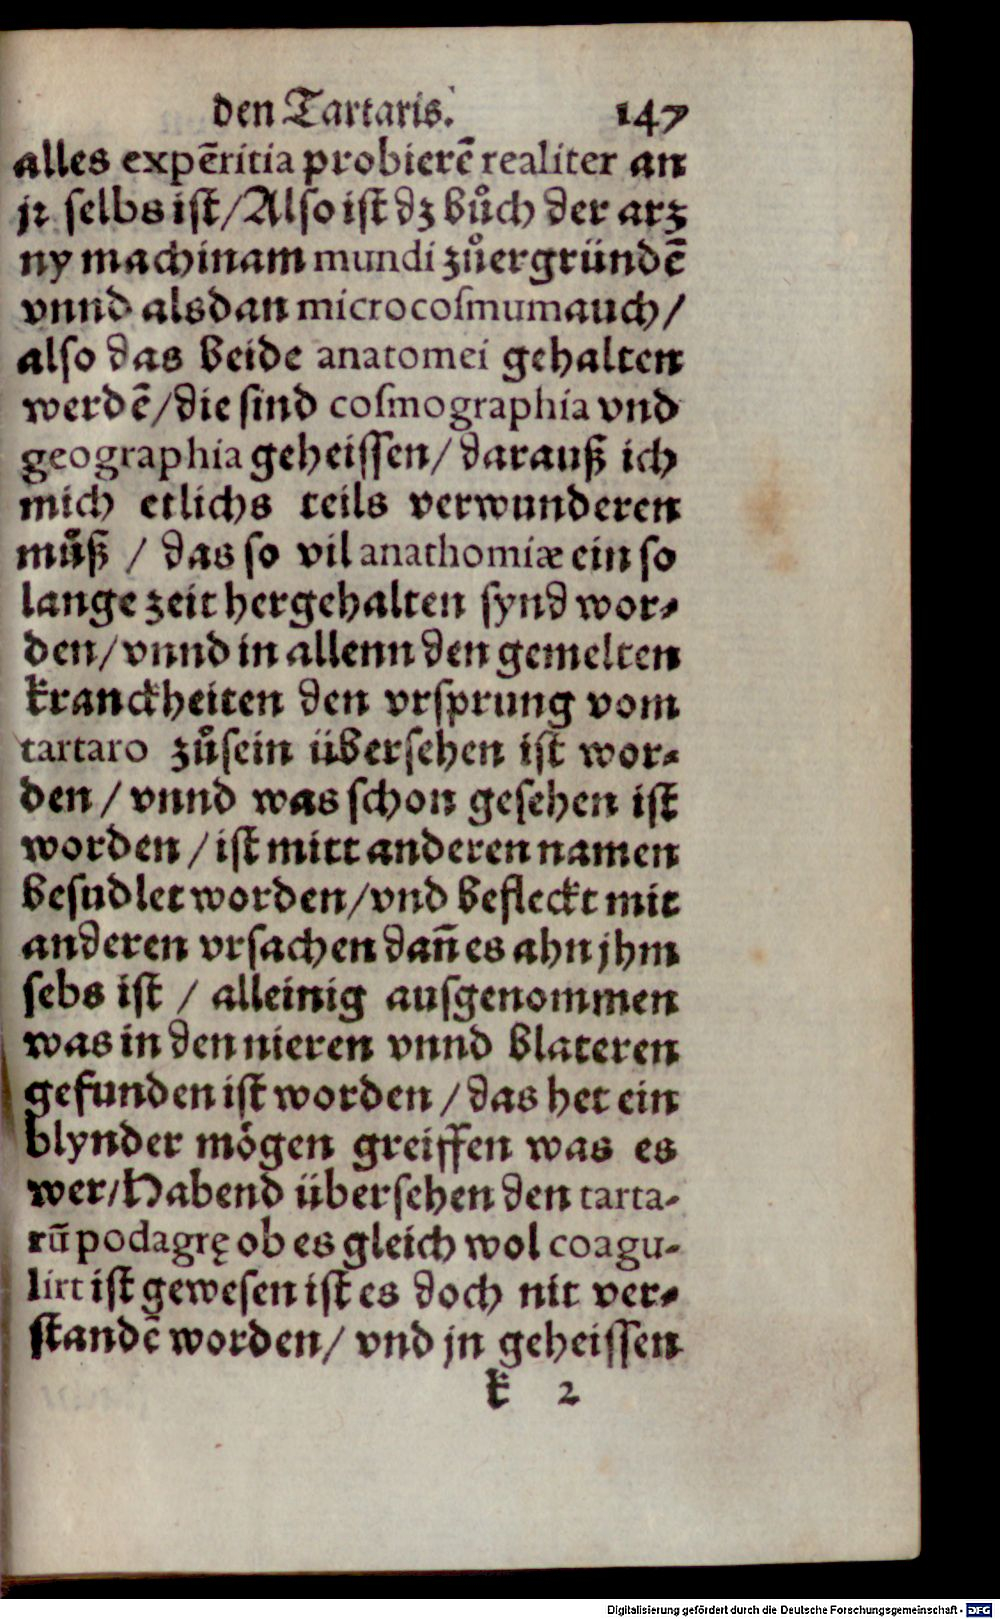 den Tartaris. 147
alles expēritia probierē realiter an
jr selbs ist/Also ist dz bůch der artz
ny machinam mundi zůergründē
vnnd alsdan microcoſmum auch/
also das beide anatomei gehalten
werdē/die sind coſmographia vnd
geographia geheissen/ darauß ich
mich etlichs teils verwunderen
můß / das so vil anathomiæ ein so
lange zeit hergehalten synd wor⸗
den/vnnd in allenn den gemelten
kranckheiten den vrsprung vom
tartaro zůsein übersehen ist wor⸗
den/ vnnd was schon gesehen ist
worden/ist mitt anderen namen
besudlet worden/vnd befleckt mit
anderen vrsachen dañ es ahn jhm
sebs ist / alleinig ausgenommen
was in den nieren vnnd blateren
gefunden ist worden/das het ein
blynder mögen greiffen was es
wer/Habend übersehen den tarta-
rū podagrę ob es gleich wol coagu-
lirt ist gewesen ist es doch nit ver⸗
standē worden/ vnd jn geheissen
k 2
Digitalisierung gefördert durch die Deutsche Forschungsgemeinschaft - DFG